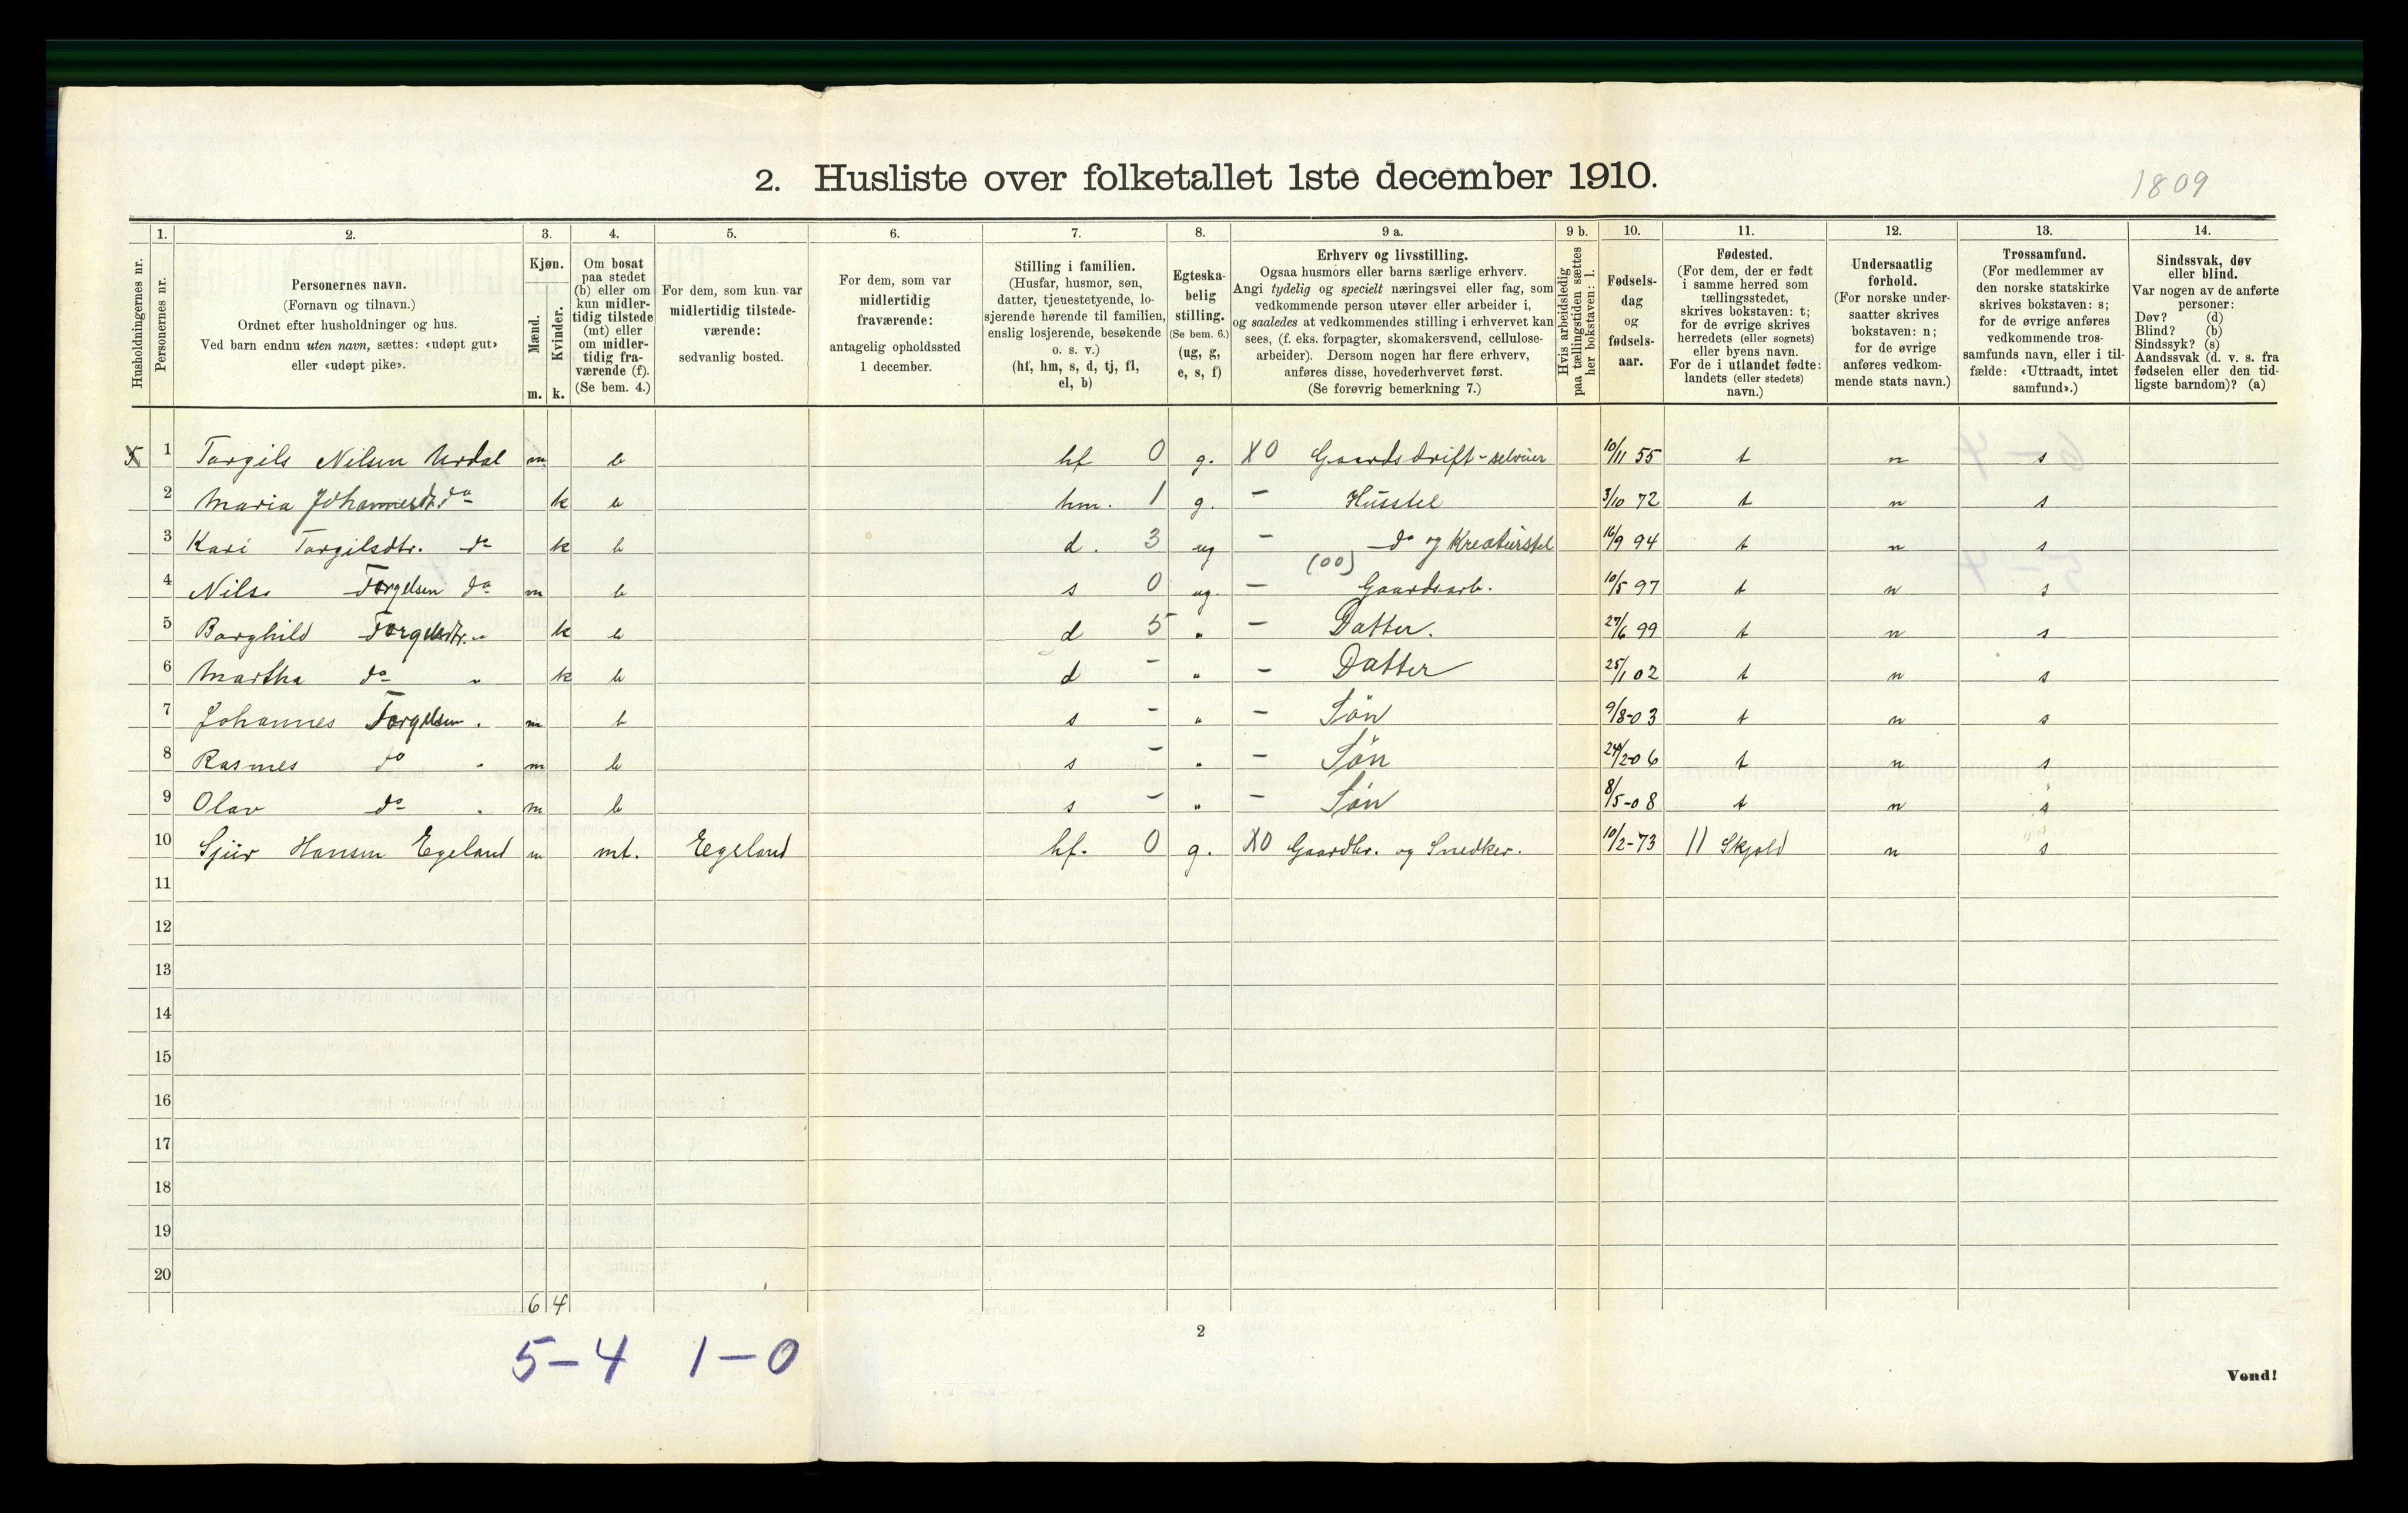 2. Husliste over folketallet 1ste december 1910.
1809
1. 2. 3. 4. 5. 6. 7. 8. 9 a. 9 b. 10. 11. 12. 13. 14.
Husholdningernes nr.
Personernes nr.
Personernes navn.
(Fornavn og tilnavn.)
Ordnet efter husholdninger og hus.
Ved barn endnu uten navn, sættes: «udøpt gut»
eller «udøpt pike».
Kjøn.
Mænd.
Kvinder.
m. k.
Om bosat
paa stedet
(b) eller om
kun midler-
tidig tilstede
(mt) eller
om midler-
tidig fra-
værende (f).
(Se bem. 4.)
For dem, som kun var
midlertidig tilstede-
værende:
sedvanlig bosted.
For dem, som var
midlertidig
fraværende:
antagelig opholdssted
1 december.
Stilling i familien.
(Husfar, husmor, søn,
datter, tjenestetyende, lo-
sjerende hørende til familien,
enslig losjerende, besøkende
o. s. v.)
(hf, hm, s, d, tj, fl,
el, b)
Egteska-
belig
stilling.
(Se bem. 6.)
(ug, g,
e, s, f)
Erhverv og livsstilling.
Ogsaa husmors eller barns særlige erhverv.
Angi tydelig og specielt næringsvei eller fag, som
vedkommende person utøver eller arbeider i,
og saaledes at vedkommendes stilling i erhvervet kan
sees, (f. eks. forpagter, skomakersvend, cellulose-
arbeider). Dersom nogen har flere erhverv,
anføres disse, hovederhvervet først.
(Se forøvrig bemerkning 7.)
Hvis arbeidsledig
paa tællingstiden sættes
her bokstaven: l.
Fødsels-
dag
og
fødsels-
aar.
Fødested.
(For dem, der er født
i samme herred som
tællingsstedet,
skrives bokstaven: t;
for de øvrige skrives
herredets (eller sognets)
eller byens navn.
For de i utlandet fødte:
landets (eller stedets)
navn.)
Undersaatlig
forhold.
(For norske under-
saatter skrives
bokstaven: n;
for de øvrige
anføres vedkom-
mende stats navn.)
Trossamfund.
(For medlemmer av
den norske statskirke
skrives bokstaven: s;
for de øvrige anføres
vedkommende tros-
samfunds navn, eller i til-
fælde: «Uttraadt, intet
samfund».)
Sindssvak, døv
eller blind.
Var nogen av de anførte
personer:
Døv? (d)
Blind? (b)
Sindssyk? (s)
Aandssvak (d. v. s. fra
fødselen eller den tid-
ligste barndom)? (a)
1 Torgils Nilsen Urdal m b hf 0 g. X0 Gaardsdrift-selveier 10/11 55 t n s
2 Maria Johannesdtr. do k b hm. 1 g. - Husstel 3/10 72 t n s
3 Kari Torgilsdtr. do k b d. 3 ug - do og Kreaturstel 16/9 94 t n s
(00)
4 Nils Torgelsen do m b s 0 ug. - Gaardsarb. 10/5 97 t n s
5 Borghild Torgelsdtr. " k b d 5 " - Datter. 27/6 99 t n s
6 Martha do " k b d - " - Datter 25/1 02 t n s
7 Johannes Torgelsen " m b s - " - Søn 9/8-03 t n s
8 Rasmes do " m b s - " - Søn 24/2-06 t n s
9 Olav do " m b s - " - Søn 8/5-08 t n s
10 Sjur Hansen Egeland m mt. Egeland hf. 0 g. X0 Gaardbr. og Snedker. 10/2-73 11 Skjold n s
11
12
13
14
15
16
17
18
19
20
6 4
5-4 1-0
2
Vend!